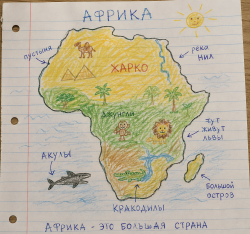 АФРИКА
пустыня
река
НИЛ
ЖАРКО
ДЖУНГЛИ
тут
живут
львы
АКУЛЫ
большой
остров
КРАКОДИЛЫ
АФРИКА - ЭТО БОЛЬШАЯ СТРАНА